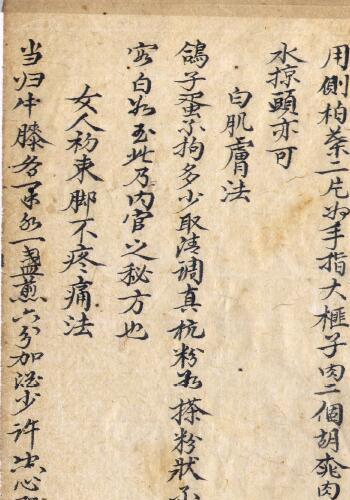 用側柏葉二片如手指大榧子肉二個胡桃肉
水掠頭亦可
白肌膚法
鴿子蛋不拘多少取清調真杭粉如搽粉狀
容白如玉此乃内官之秘方也
女人初束脚不疼痛法
当归牛膝各一
一盞煎六分加酒少許